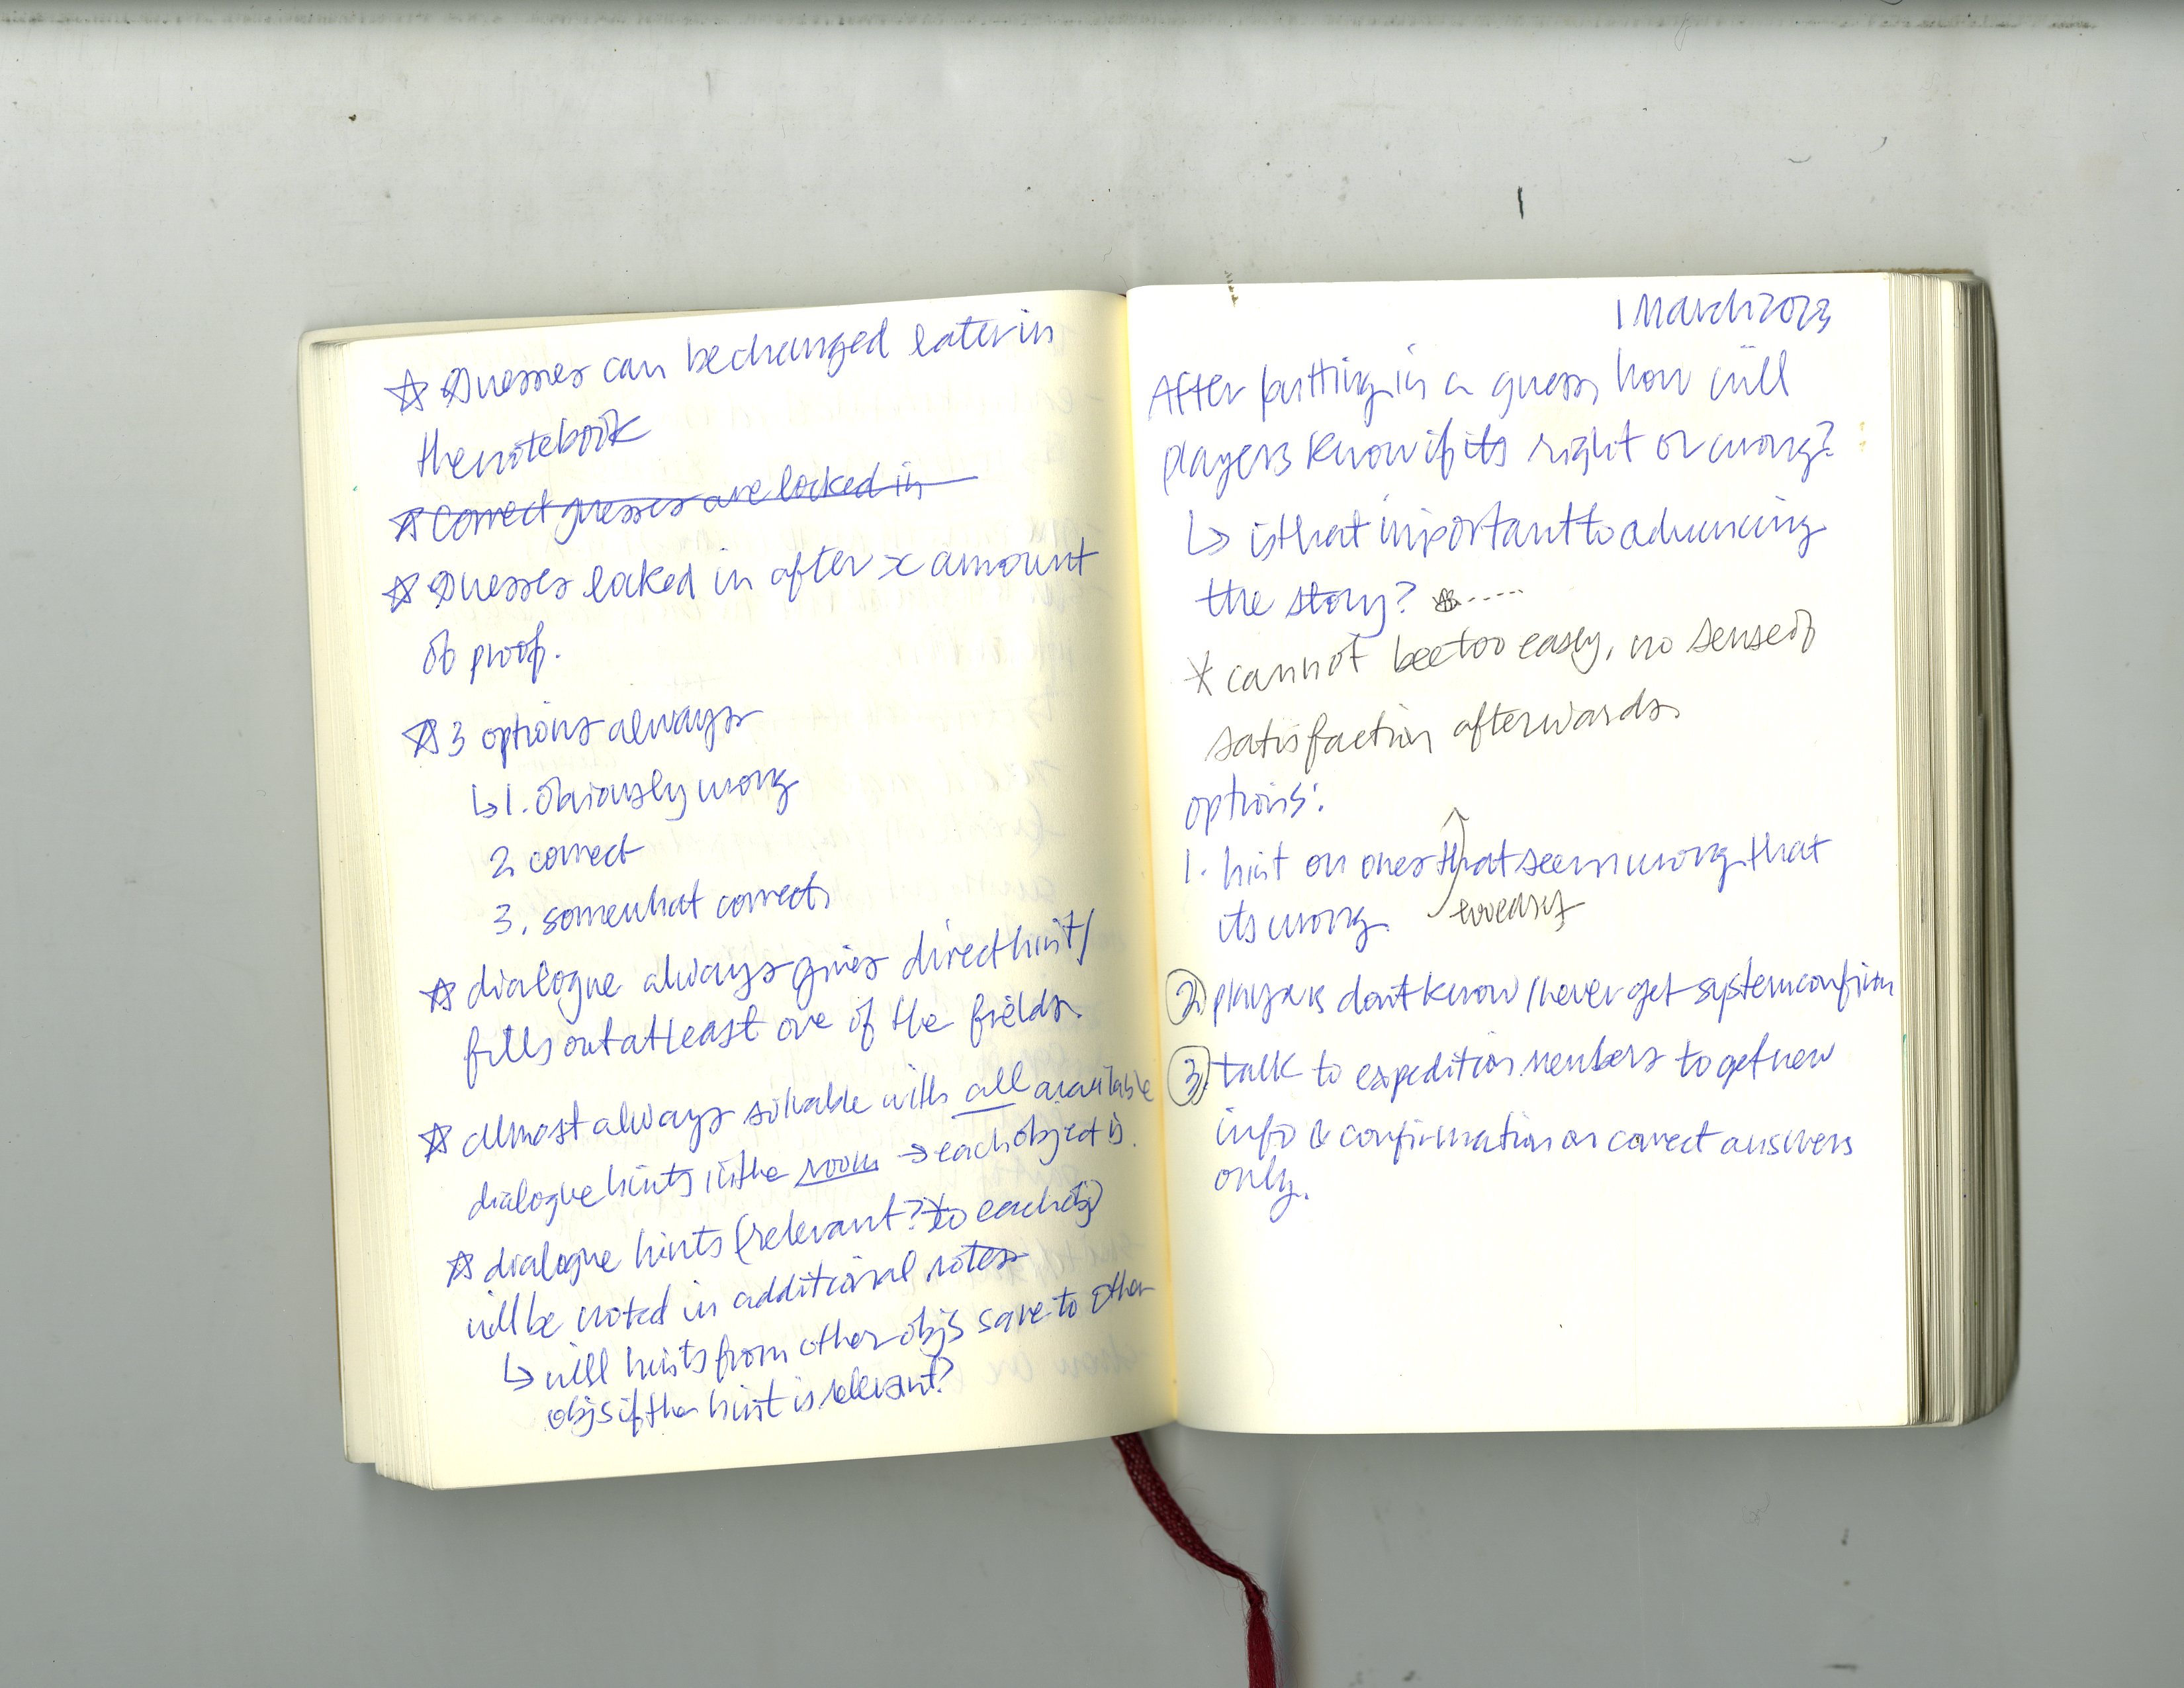 ☆ Guesses can be changed later in
the notebook
☆ Correct guesses are locked in
☆ Guesses locked in after x amount
of proof.
☆ 3 options always
↳ 1. obviously wrong
2. correct
3. somewhat correct
☆ dialogue always gives direct hint/
fills out at least one of the fields.
☆ almost always solvable with all available
dialogue hints in the room → each object is.
☆ dialogue hints (relevant? to each obj)
will be noted in additional notes
↳ will hints from other objs save to other
objs if the hint is relevant?
1 March 2023
After putting in a guess, how will
players know if its right or wrong?
↳ is that important to advancing
the story?
* cannot bee too easy, no sense of
satisfaction afterwards.
options:
1. hint on ones that seem wrong that
its wrong. too easy
2. players dont know / never get system confirm
3. talk to expedition members to get new
info & confirmation on correct answers
only.